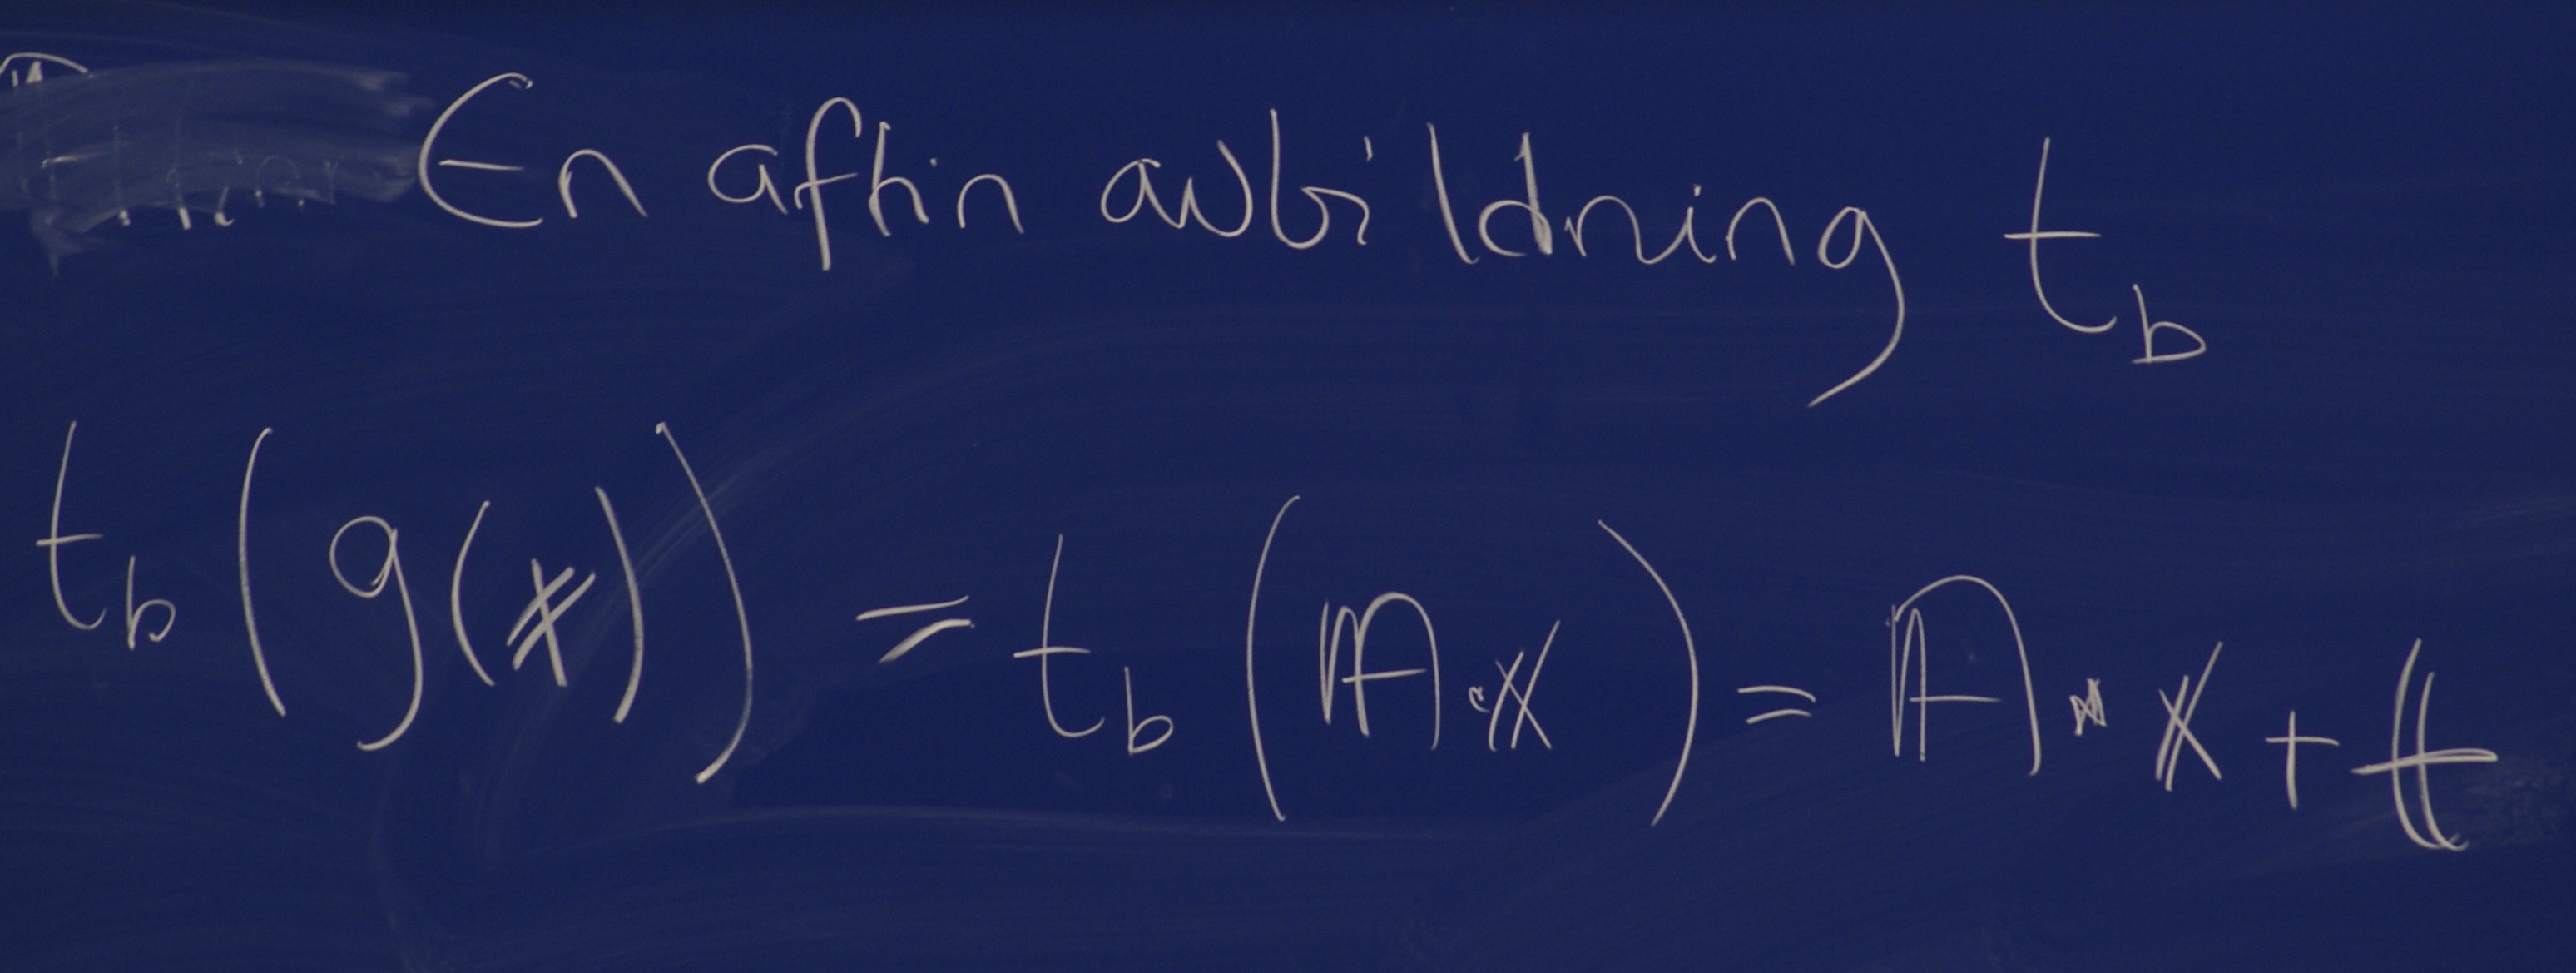 En affin avbildning t_b
t_b(g(𝕩)) = t_b(𝔸·𝕩) = 𝔸·𝕩 + 𝕥